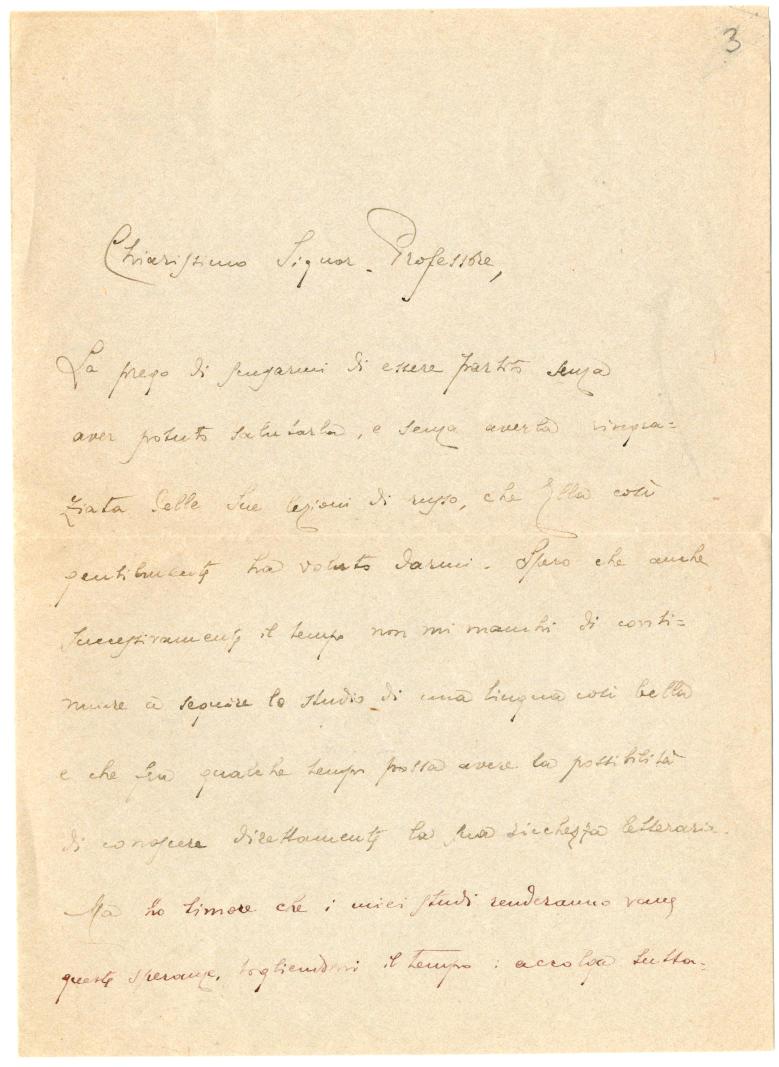 3
Chiarissimo Signor Professore,
La prego di scusarmi di essere partito senza
aver potuto salutarla, e senza averla ringra=
ziata delle Sue lezioni di russo, che Ella così
gentilmente ha voluto darmi. Spero che anche
successivamente il tempo non mi manchi di conti=
nuare a seguire lo studio di una lingua così bella
e che fra qualche tempo possa avere la possibilità
di conoscere direttamente la sua ricchezza letteraria.
Ma ho timore che i miei studi renderanno vane
queste speranze, togliendomi il tempo: accolga tutta=